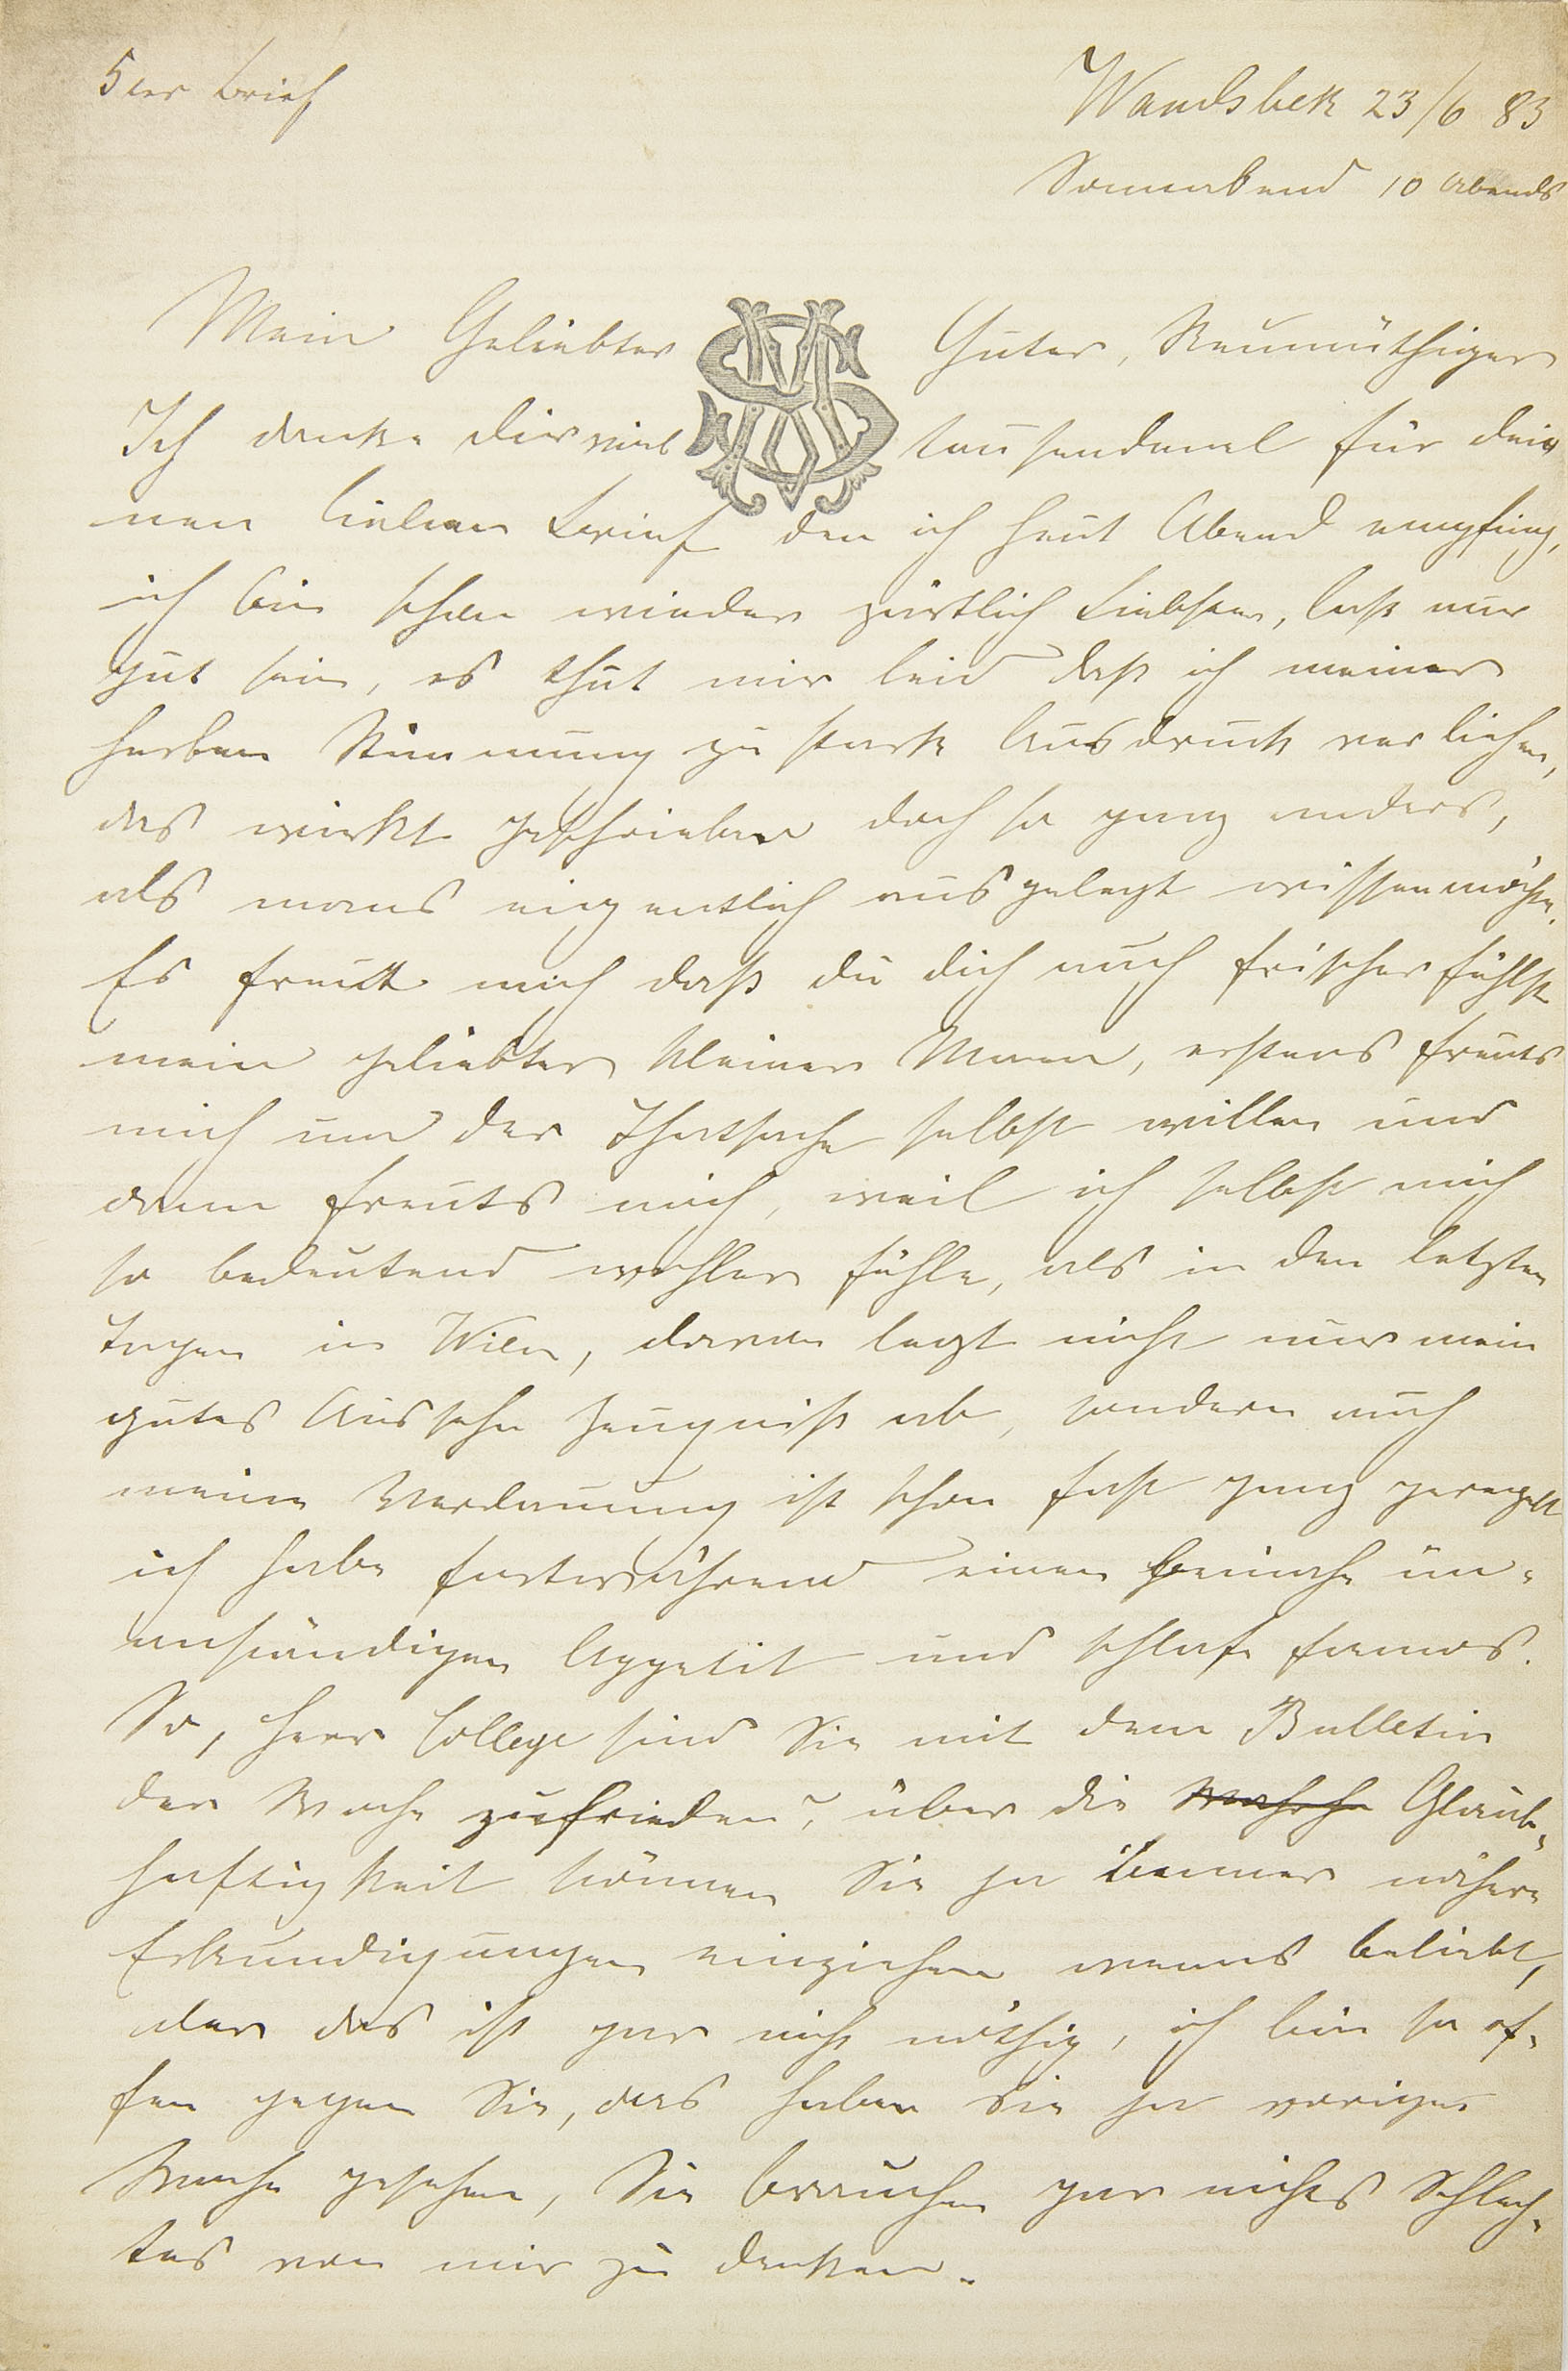 5ter Brief
Wandsbek 23/6 83
Sonnabend 10 Abends
Mein Geliebter Guter, Reumüthiger
Ich danke dir viel tausendmal für dei-
nen lieben Brief den ich heut Abend empfing,
ich bin schon wieder zärtlich Liebster, laß nur
gut sein, es thut mir leid daß ich meiner
herben Stimmung zu stark Ausdruck verliehen,
das wirkt geschrieben doch so ganz anders,
als mans eigentlich ausgelegt wissen möchte.
Es freut mich daß du dich auch frischer fühlst
mein geliebter kleiner Mann, erstens freuts
mich um der Thatsache selbst willen und
dann freuts mich, weil ich selbst mich
so bedeutend wohler fühle, als in den letzten
Tagen in Wien, davon legt nicht nur mein
gutes Aussehn Zeugniß ab, sondern auch
meine Verdauung ist schon fast ganz geregelt
ich habe fortwährend einen beinahe un-
anständigen Appetit und schlafe famos.
So, Herr College sind Sie mit dem Bulletin
der Woche zufrieden?, über die Glaub-
haftigkeit können Sie ja immer nähere
Erkundigungen einziehen wenns beliebt,
aber das ist gar nicht nöthig, ich bin so of-
fen gegen Sie, das haben Sie ja voriger
Woche gesehen, Sie brauchen gar nichts Schlech-
tes von mir zu denken.